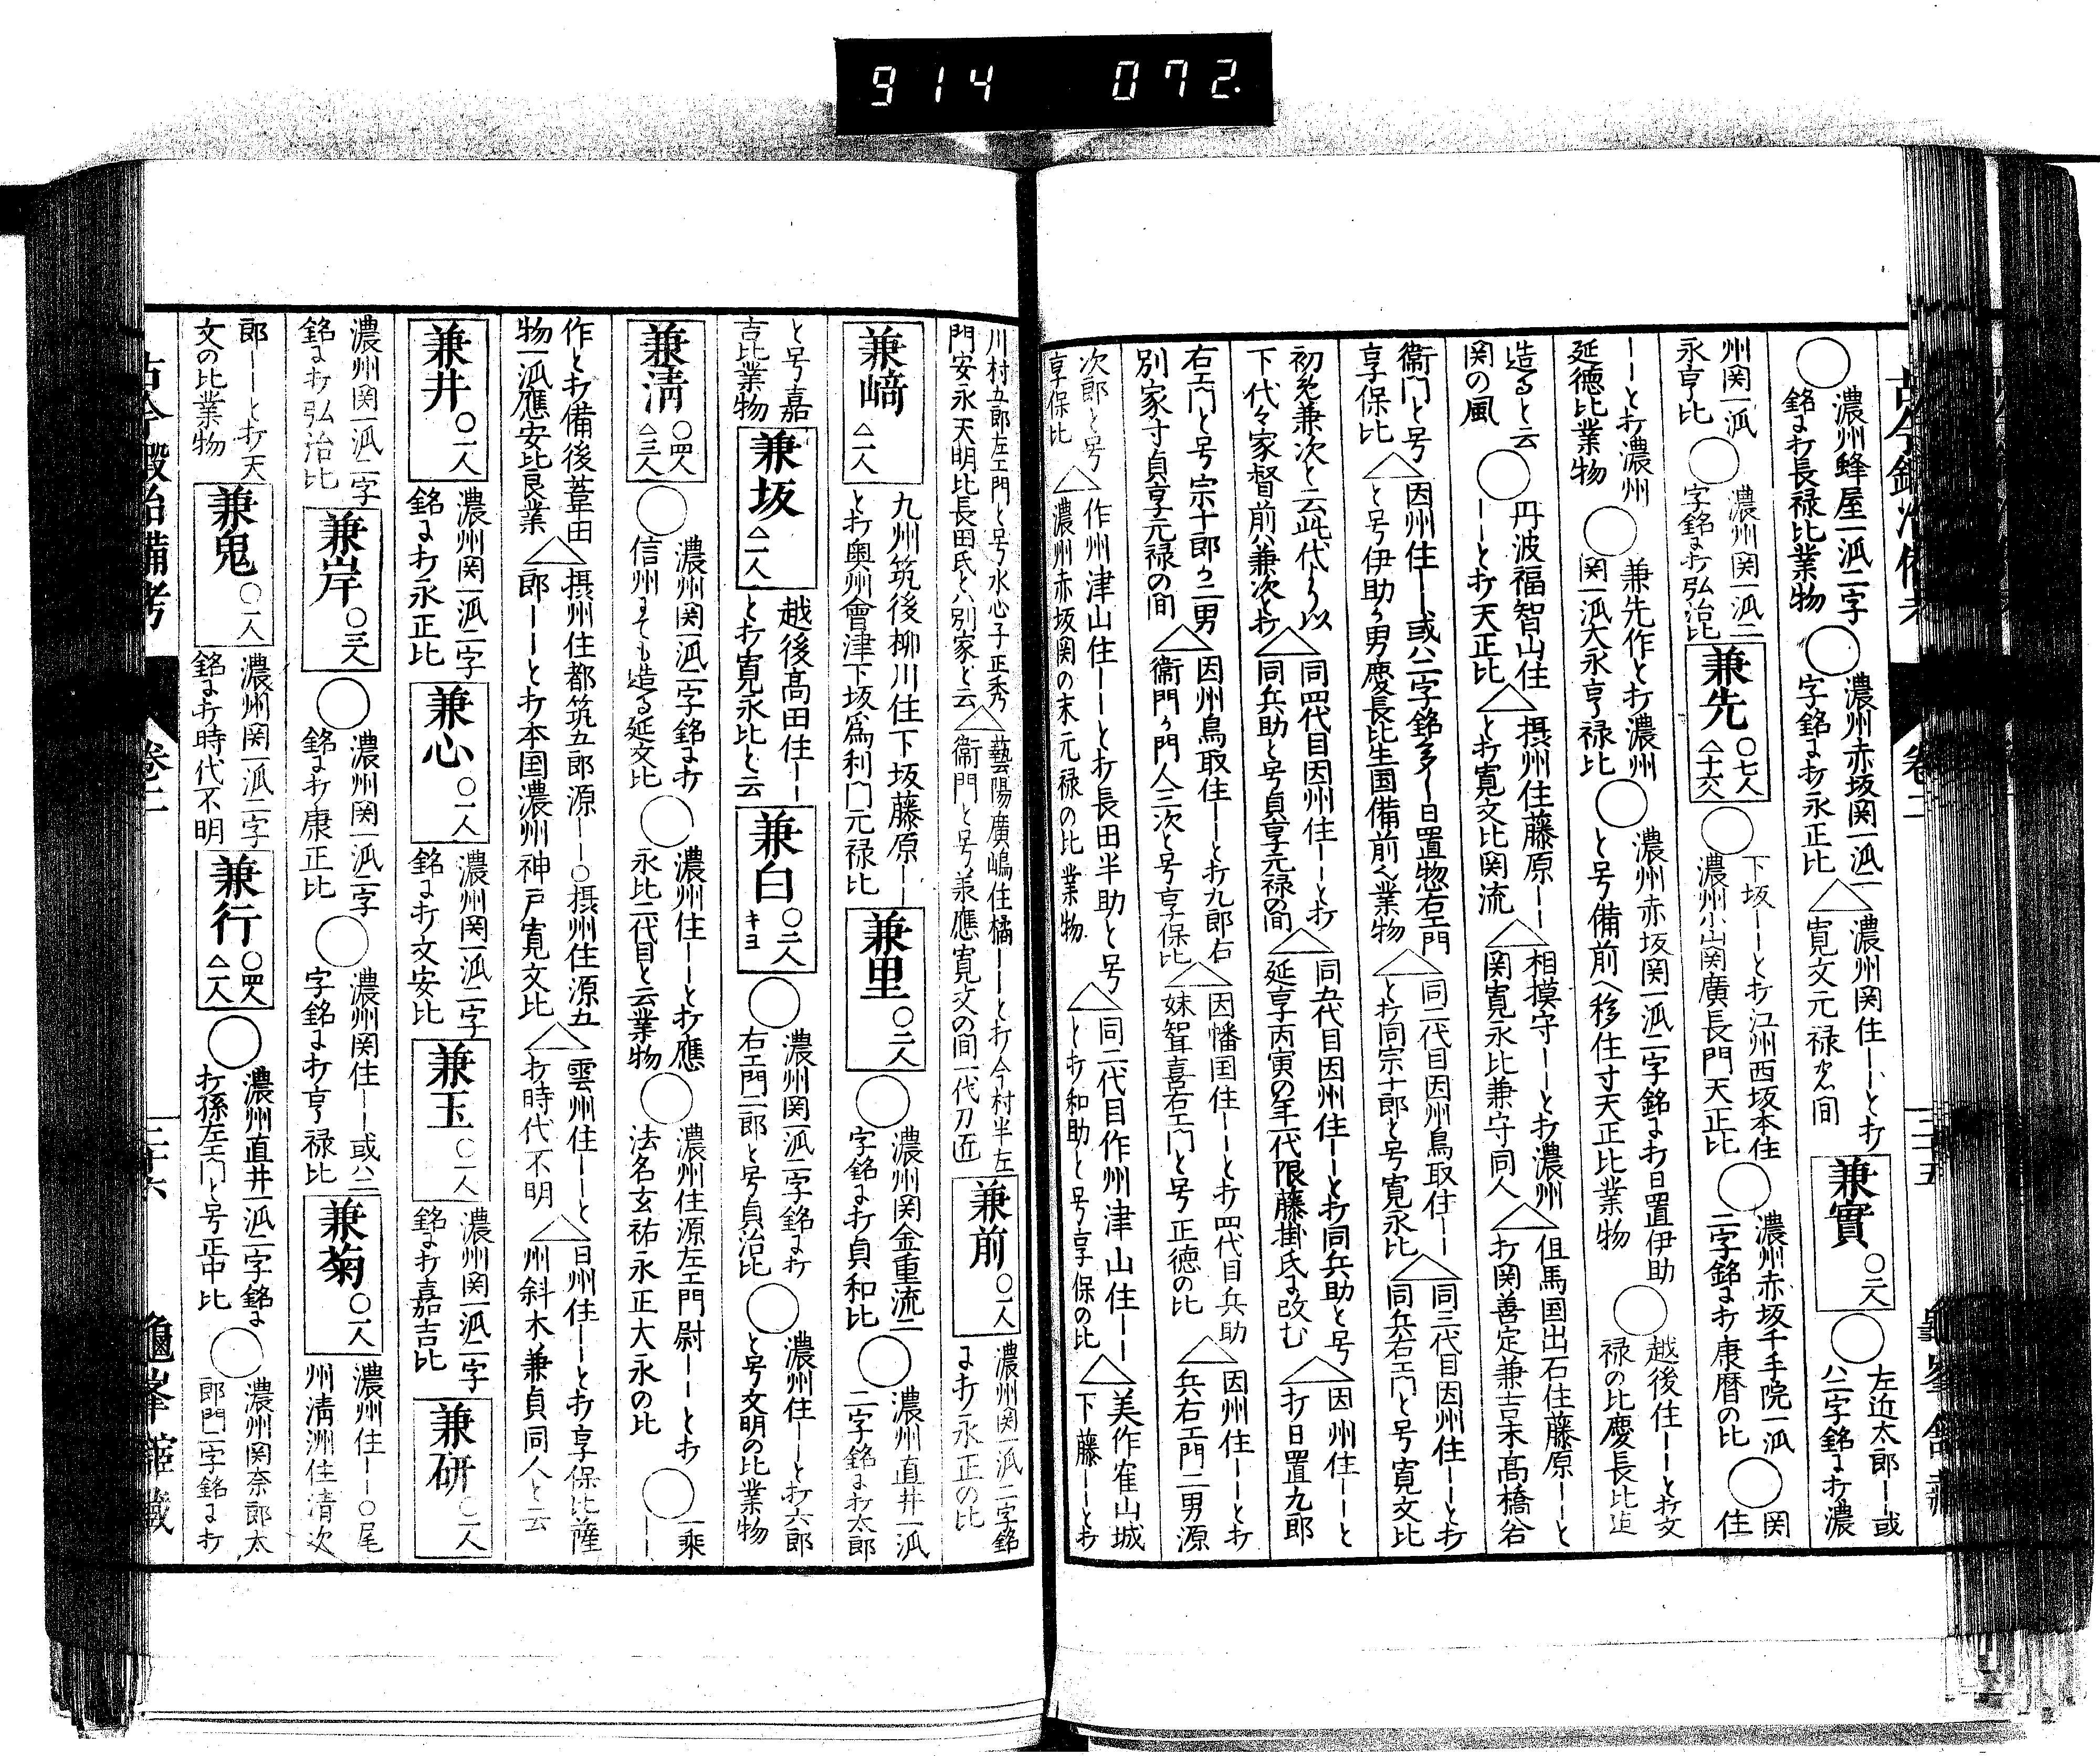 914 072.
古今鍛冶備考 卷二 三十五
○濃州蜂屋一派二字銘に打長禄比業物○濃州赤坂関一派二字銘に打永正比△濃州関住——と打寛文元禄の間 兼實 ○二人 ○左近太郎—或ハ二字銘に打濃
州関一派永享比○濃州関一派二字銘に打弘治比 兼先 ○七人 △十六人 ○下坂——と打江州西坂本住濃州小山関廣長門天正比○濃州赤坂千手院一派二字銘に打康暦の比○関住
——と打濃州延徳比業物○兼先作と打濃州関一派大永享禄比○濃州赤坂関一派二字銘に打日置伊助と号備前へ移住す天正比業物○越後住——と打文禄の比慶長比迄
造ると云関の風○丹波福智山住——と打天正比△摂州住藤原——と打寛文比関流△相摸守——と打濃州関寛永比兼守同人△但馬国出石住藤原——と打関善定兼吉末髙橋谷
衛門と号享保比△因州住—或ハ二字銘多し日置惣右エ門と号伊助の男慶長比生国備前之業物△同二代目因州鳥取住—と打同宗十郎と号寛永比△同三代目因州住——と打同兵右エ門と号寛文比
初兼次と云此代より以下代々家督前ハ兼次と打△同四代目因州住——と打同兵助と号貞享元禄の間△同五代目因州住——と打同兵助と号延享丙寅の年代限藤掛氏に改む△因州住——と打日置九郎
右エ門と号宗十郎の二男別家す貞享元禄の間△因州鳥取住——と打九郎右衛門の門人三次と号享保比△因幡国住——と打四代目兵助妹聟喜右エ門と号正徳の比△因州住——と打兵右エ門二男源
次郎と号享保比△作州津山住——と打長田半助と号濃州赤坂関の末元禄の比業物△同二代目作州津山住——と打和助と号享保の比△美作寉山城下藤——と打
川村五郎左エ門と号水心子正秀門安永天明比長田氏と別家と云△藝陽廣嶋住橘——と打今村半左衛門と号承應寛文の間一代刀匠 兼前 ○一人 濃州関一派二字銘に打永正の比
兼﨑 △一人 九州筑後柳川住下坂藤原——と打奥州會津下坂為利門元禄比 兼里 ○二人 ○濃州関金重流二字銘に打貞和比○濃州直井一派二字銘に打太郎
と号嘉吉比業物 兼坂 △一人 越後髙田住——と打寛永比と云 兼白 ○二人 キヨ ○濃州関一派二字銘に打右エ門二郎と号貞治比○濃州住——と打六郎と号文明の比業物
兼淸 ○四人 △三人 ○濃州関一派二字銘に打信州にても造る延文比○濃州住——と打應永比二代目と云業物○濃州住源左エ門尉——と打法名玄祐永正大永の比○一乘——
作と打備後葦田物一派應安比良業△摂州住都筑五郎源——○摂州住源五郎——と打本国濃州神戸寛文比△雲州住——と打時代不明△日州住——と打享保比薩州斜木兼貞同人と云
兼井 ○一人 濃州関一派二字銘に打永正比 兼心 ○一人 濃州関一派二字銘に打文安比 兼玉 ○一人 濃州関一派二字銘に打嘉吉比 兼研 ○一人
濃州関一派二字銘に打弘治比 兼岸 ○三人 ○濃州関一派二字銘に打康正比○濃州関住——或ハ二字銘に打享禄比 兼菊 ○一人 濃州住——○尾州淸洲住淸次
郎——と打天文の比業物 兼鬼 ○一人 濃州関一派二字銘に打時代不明 兼行 ○四人 △一人 ○濃州直井一派二字銘に打孫左エ門と号正中比○濃州関奈郎太郎門二字銘に打
古今鍛冶備考 卷二 三十六 龜峯館藏